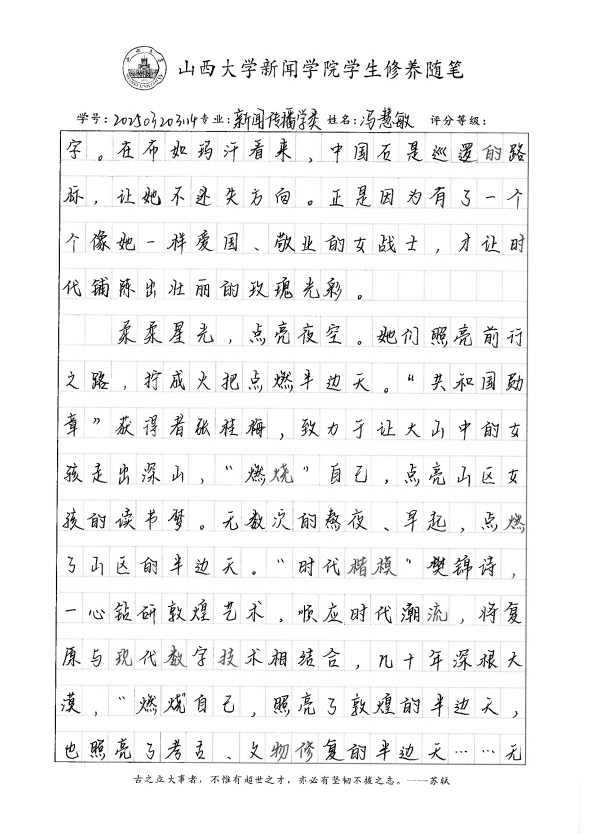 山西大学新闻学院学生修养随笔
学号：202503203114 专业：新闻传播学类 姓名：冯慧敏 评分等级：
字。在布如玛汗看来，中国石是巡逻的路
标，让她不迷失方向。正是因为有了一个
个像她一样爱国、敬业的女战士，才让时
代铺陈出壮丽的玫瑰光彩。
柔柔星光，点亮夜空。她们照亮前行
之路，拧成火把点燃半边天。“共和国勋
章”获得者张桂梅，致力于让大山中的女
孩走出深山，“燃烧”自己，点亮山区女
孩的读书梦。无数次的熬夜、早起，点燃
了山区的半边天。“时代楷模”樊锦诗，
一心钻研敦煌艺术，顺应时代潮流，将复
原与现代数字技术相结合，几十年深根大
漠，“燃烧”自己，照亮了敦煌的半边天，
也照亮了考古、文物修复的半边天……无
古之立大事者，不惟有超世之才，亦必有坚韧不拔之志。——苏轼